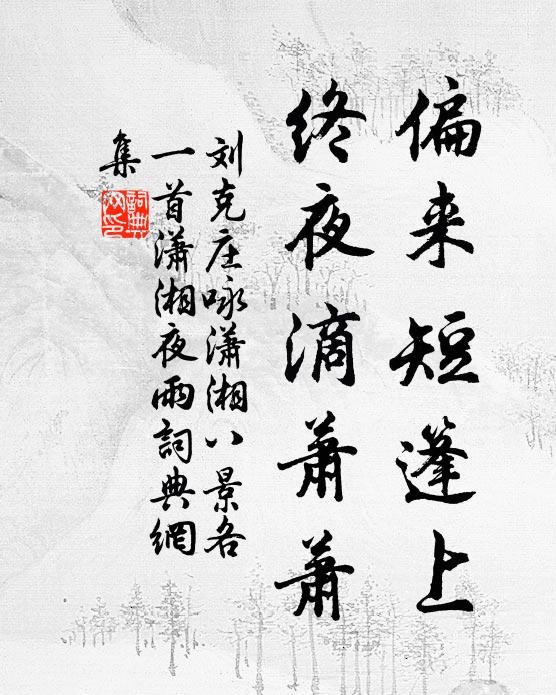 偏来短篷上
终夜滴萧萧
刘克庄咏潇湘八景各
一首潇湘夜雨詞典網
集
詞典网印